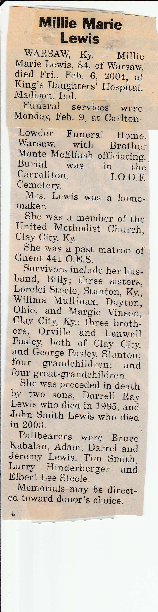 Millie Marie
Lewis
WARSAW, Ky. Millie
Marie Lewis, 84, of Warsaw,
died Fri. Feb. 6, 2004, at
King's Daughters' Hospital,
Madison, Ind.
Funeral services were
Monday, Feb. 9, at Carlton-
Lowder Funeral Home,
Warsaw, with Brother
Monte McElfish officiating.
Burial was in the
Carrollton I.O.O.F.
Cemetery.
Mrs. Lewis was a home-
maker.
She was a member of the
United Methodist Church,
Clay City, Ky.
She was a past matron of
Ghent 441 O.E.S.
Survivors include her hus-
band, Billy; three sisters,
Steele, Stanton, Ky.,
Wilma Mullinax, Dayton,
Ohio, and Margie Vinson,
Clay City, Ky.; three broth-
ers, Orville and
Pasley, both of Clay City,
and George Pasley, Stanton;
four grandchildren; and
four great-grandchildren.
She was preceded in death
by two sons, Darrell Ray
Lewis who died in 1995, and
John Smith Lewis who died
in
Pallbearers were Bruce
Kabalan, Adam, Darrel and
Jeremy Lewis, Tim Smith,
Larry Hinderberger and
Elbert Lee Steele.
Memorials may be direct-
ed toward donor's choice.